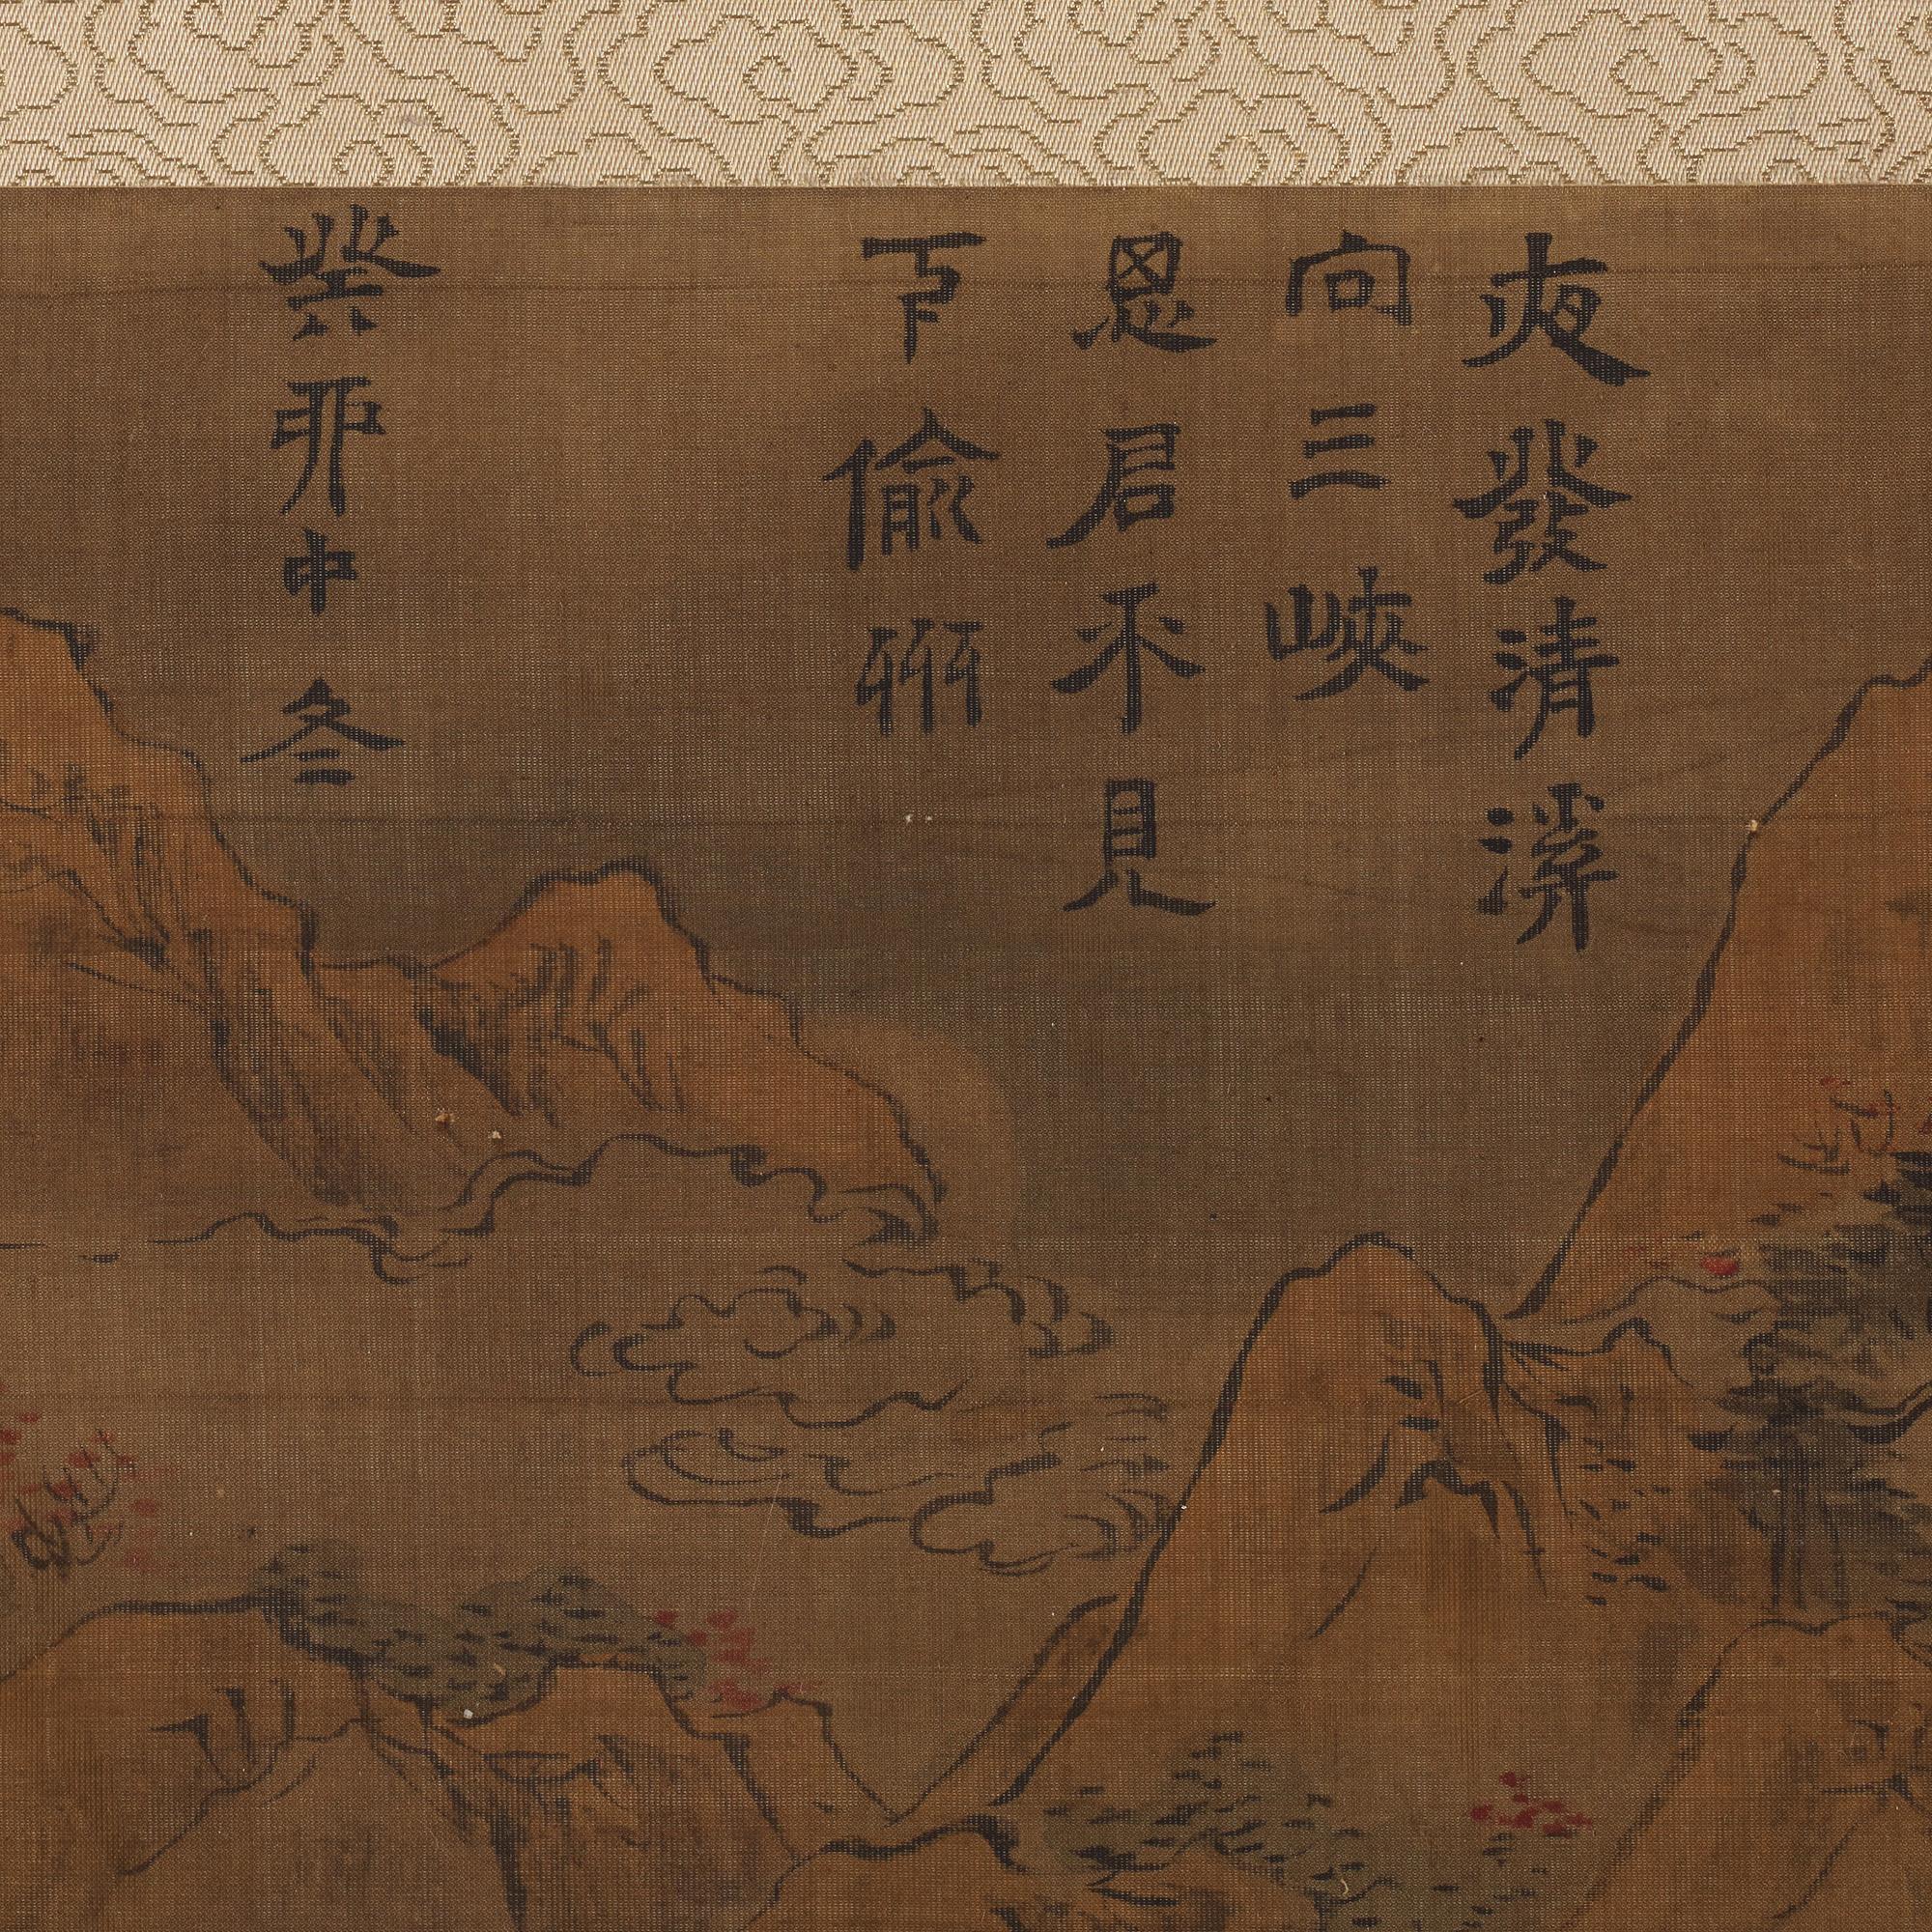 夜發清溪
向三峽
思君不見
下偷州
癸卯中冬